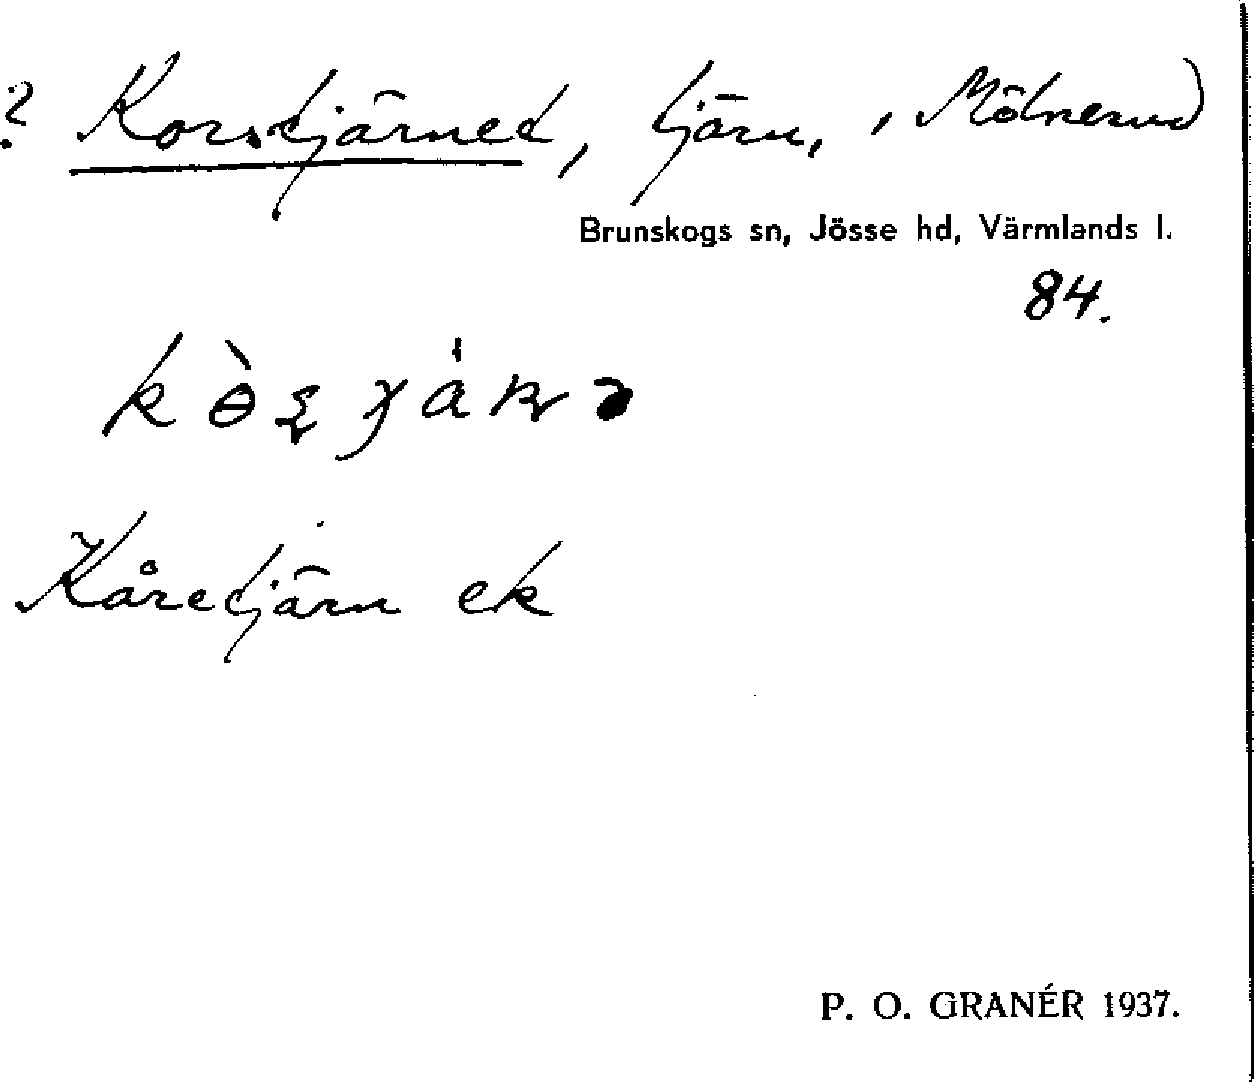 ? Korstjärnet, tjärn, i Mölnerud
Brunskogs sn, Jösse hd, Värmlands l.
84.
Kåretjärn ek
P. O. GRANÉR 1937.